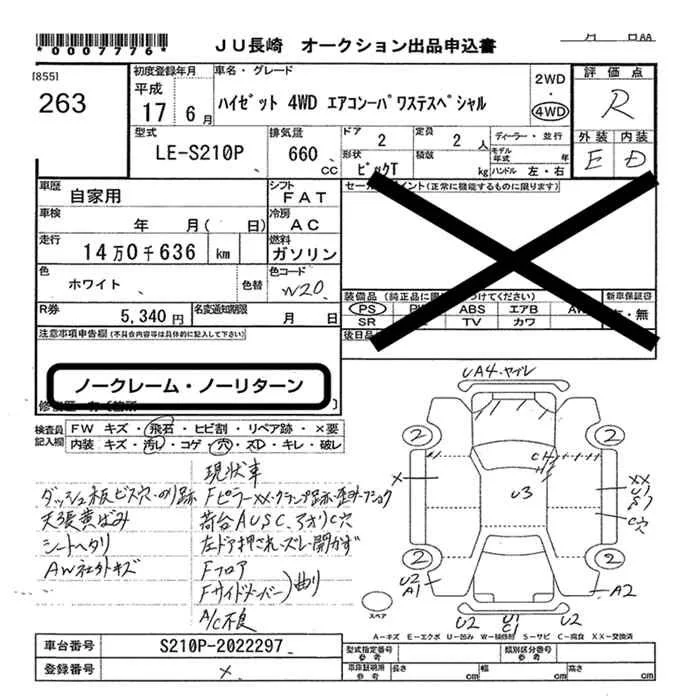 *0007776*
JU長崎 オークション出品申込書
月 日AA
[855]
263
初度登録年月
平成
17 6月
車名・グレード
ハイゼット 4WD エアコンーパワステスペシャル
2WD
・
4WD
評価点
R
外装 内装
E D
型式
LE-S210P
排気量
660 cc
ドア 2
定員 2 人
形状
ピックT
積載 kg
ディーラー・並行
モデル年式 年
ハンドル 左・右
車歴
自家用
シフト
FAT
車検
年 月( 日)
冷房
AC
走行
14万0千636 km
燃料
ガソリン
色
ホワイト
色替
色コード
W20
R券
5,340円
名変通知期限
月 日
セールスポイント(正常に機能するものに限ります)
装備品
新車保証書
有・無
PS
ABS
エアB
SR
TV
カワ
注意事項申告欄(不具合内容等は具体的に記入して下さい)
ノークレーム・ノーリターン
検査員記入欄
FW キズ・飛石・ヒビ割・リペア跡・×要
内装 キズ・汚レ・コゲ・穴・スレ・キレ・破レ
現状車
ダッシュ板ビス穴・のり跡
Fピラー××・クランプ跡・歪
天張黄ばみ
荷台AUSC、アオリC穴
シートヘタリ
左ドア押され・ズレ・開かず
AW社外キズ
Fフロア
Fサイドメンバー)曲り
A/C不良
UA4・ヤブレ
2 2
C H
H
X
U3
XX
U1
S7
C穴
2 2
U2
A1
A2
U2
U1
C1
U2
スペア
A-キズ E-エクボ U-凹み W-補修跡 S-サビ C-腐食 XX-交換済
車台番号
S210P-2022297
登録番号
×
型式指定番号
参考
類別区分番号
参考
車庫証明用
参考
長さ cm
幅 cm
高さ cm